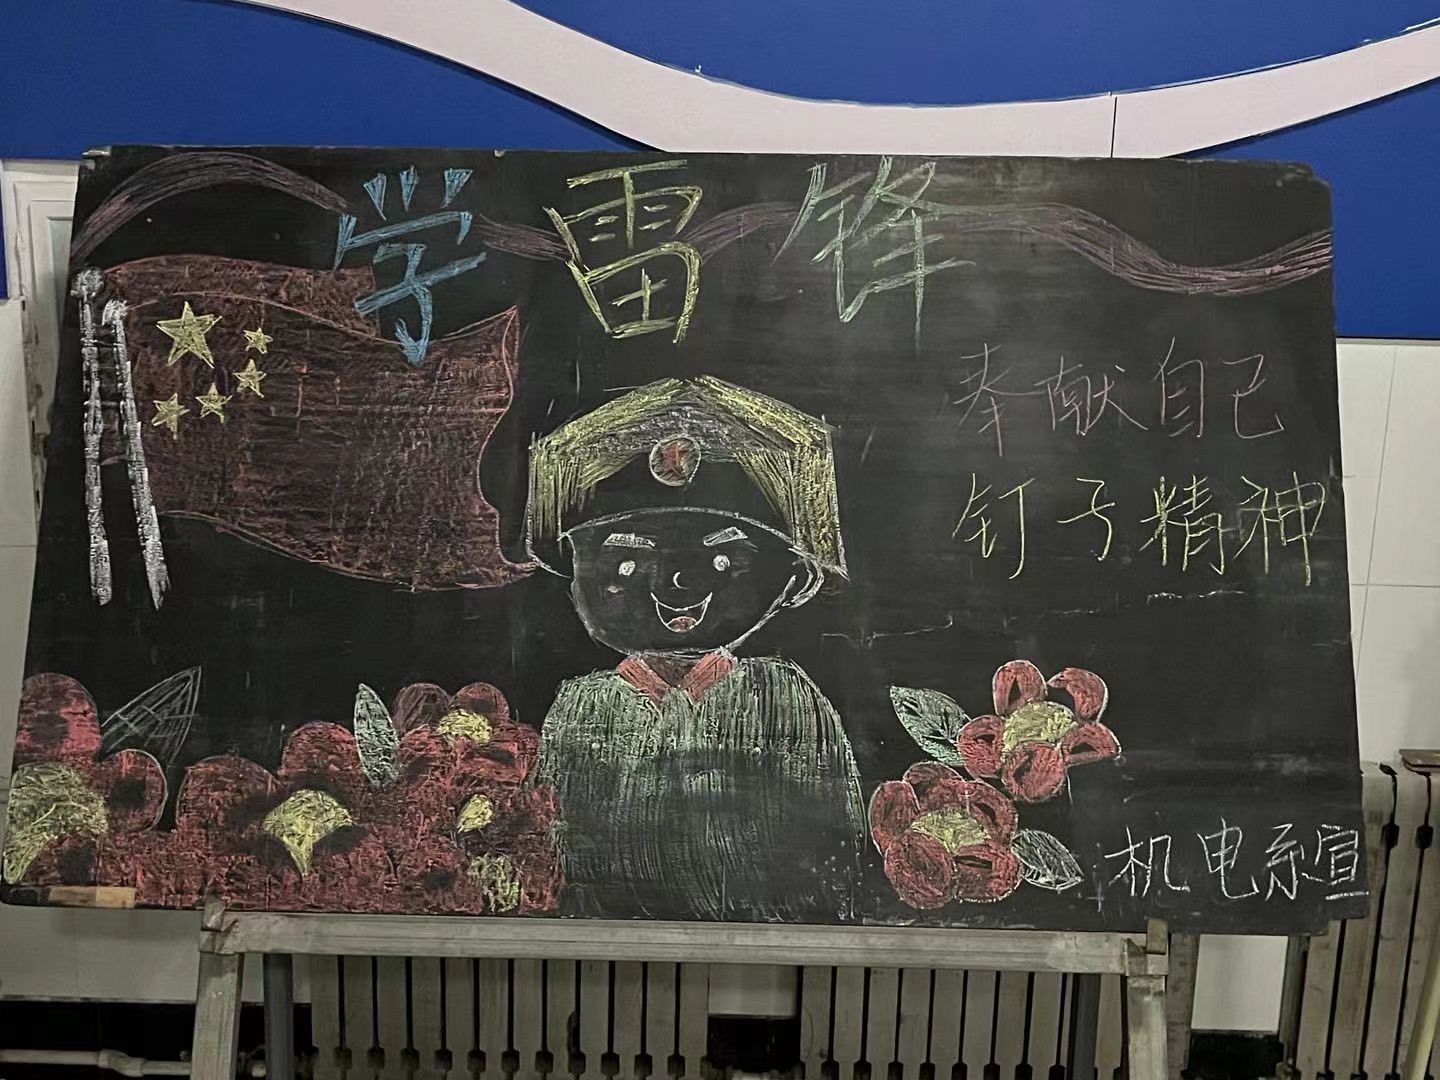 学雷锋
奉献自己
钉子精神
机电系宣